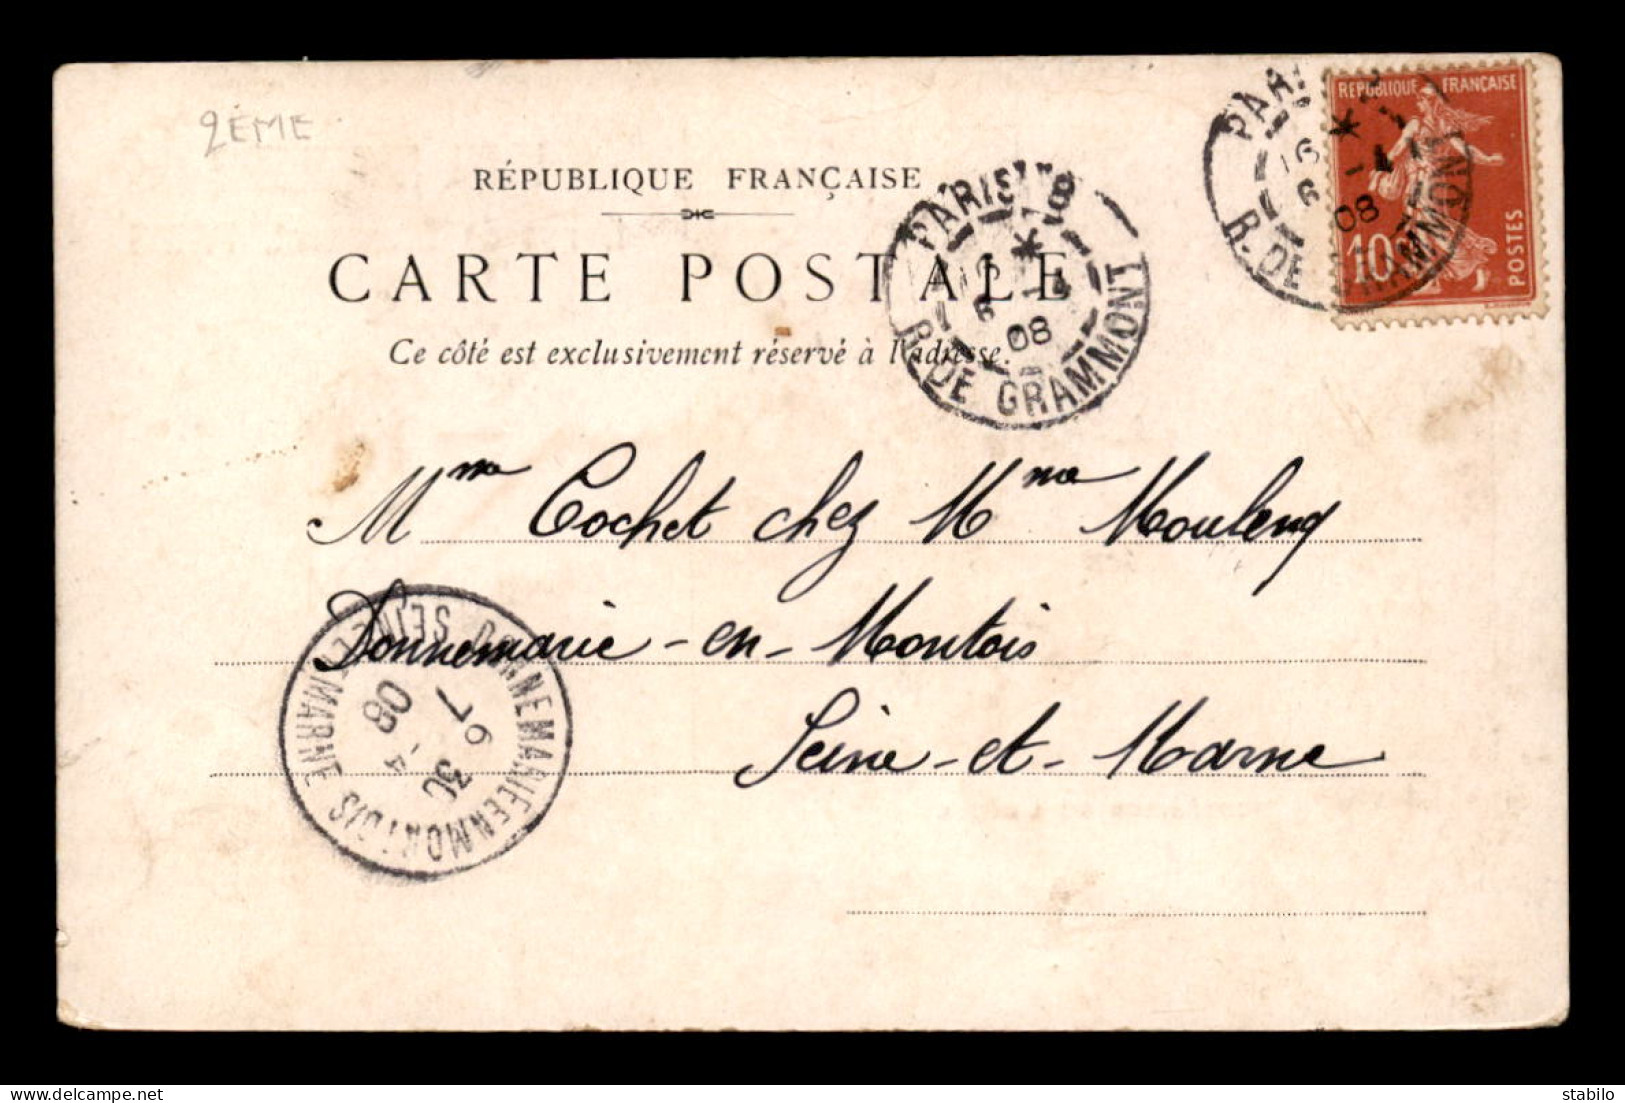 2ÈME
RÉPUBLIQUE FRANÇAISE
CARTE POSTALE
Ce côté est exclusivement réservé à l'adresse.
RÉPUBLIQUE FRANÇAISE
10
POSTES
R. DE GRAMMONT
08
PARIS
16
6 -4
08
R. DE GRAMMONT
Mme Cochet chez Mme Mouleng
Donnemarie-en-Montois
Seine-et-Marne
DONNEMARIE EN MONTOIS
SEINE ET MARNE
7 30
6 -4
08
stabilo
www.delcampe.net